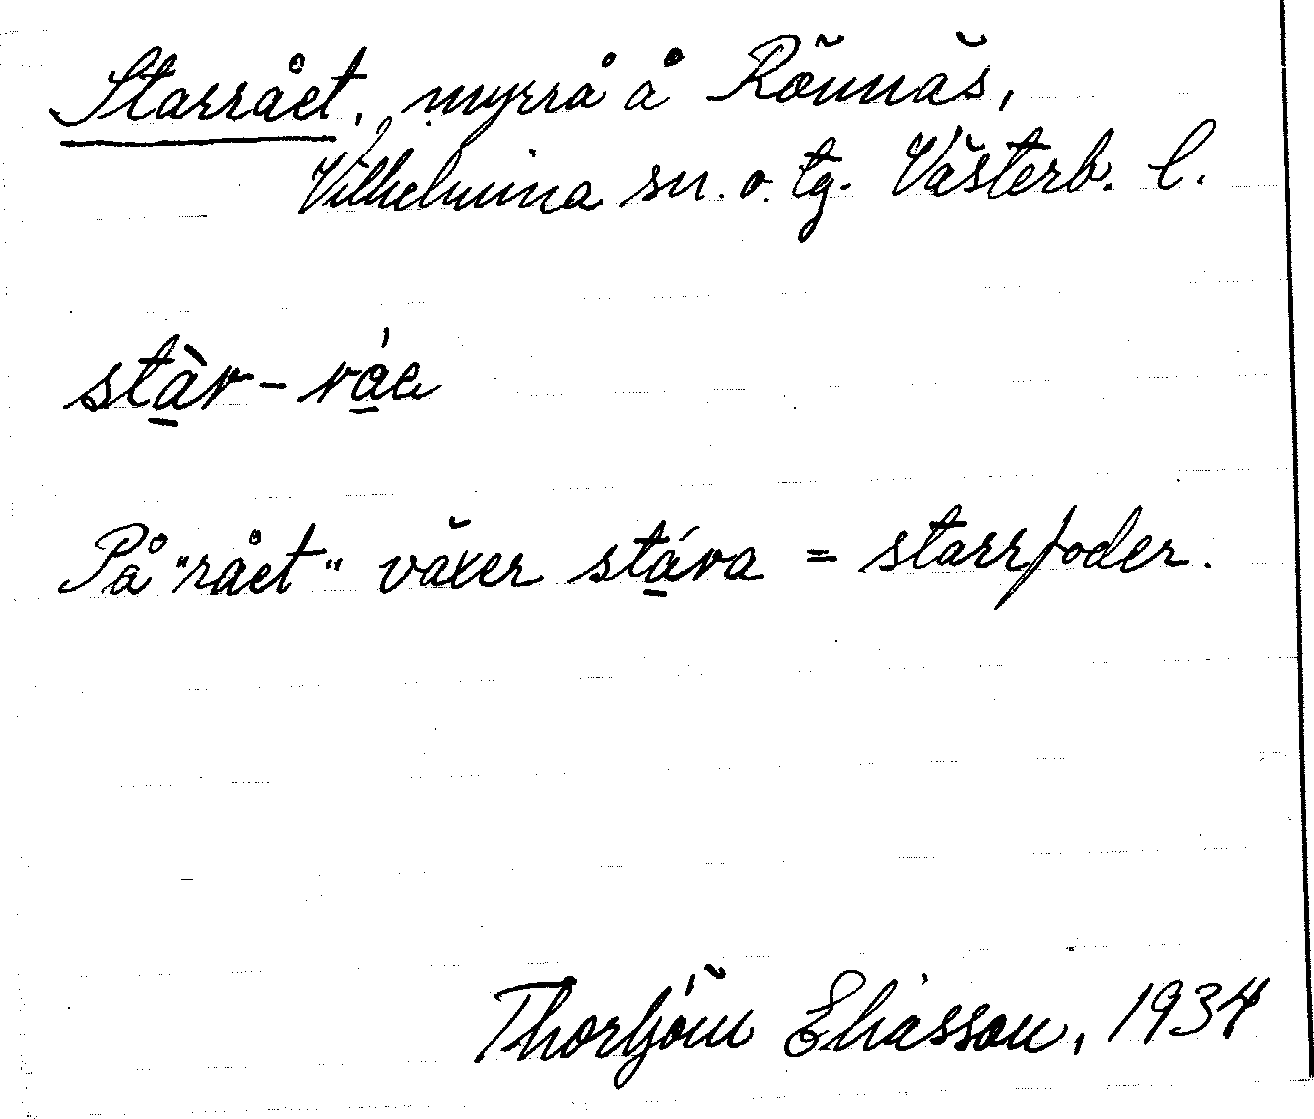 Starrået, myrrå å Rönnäs,
Vilhelmina sn. o. tg. Västerb. l.
stà̱r-rá̱e
På "rået" växer stá̱ra = starrfoder.
Thorbjörn Eliasson, 1934